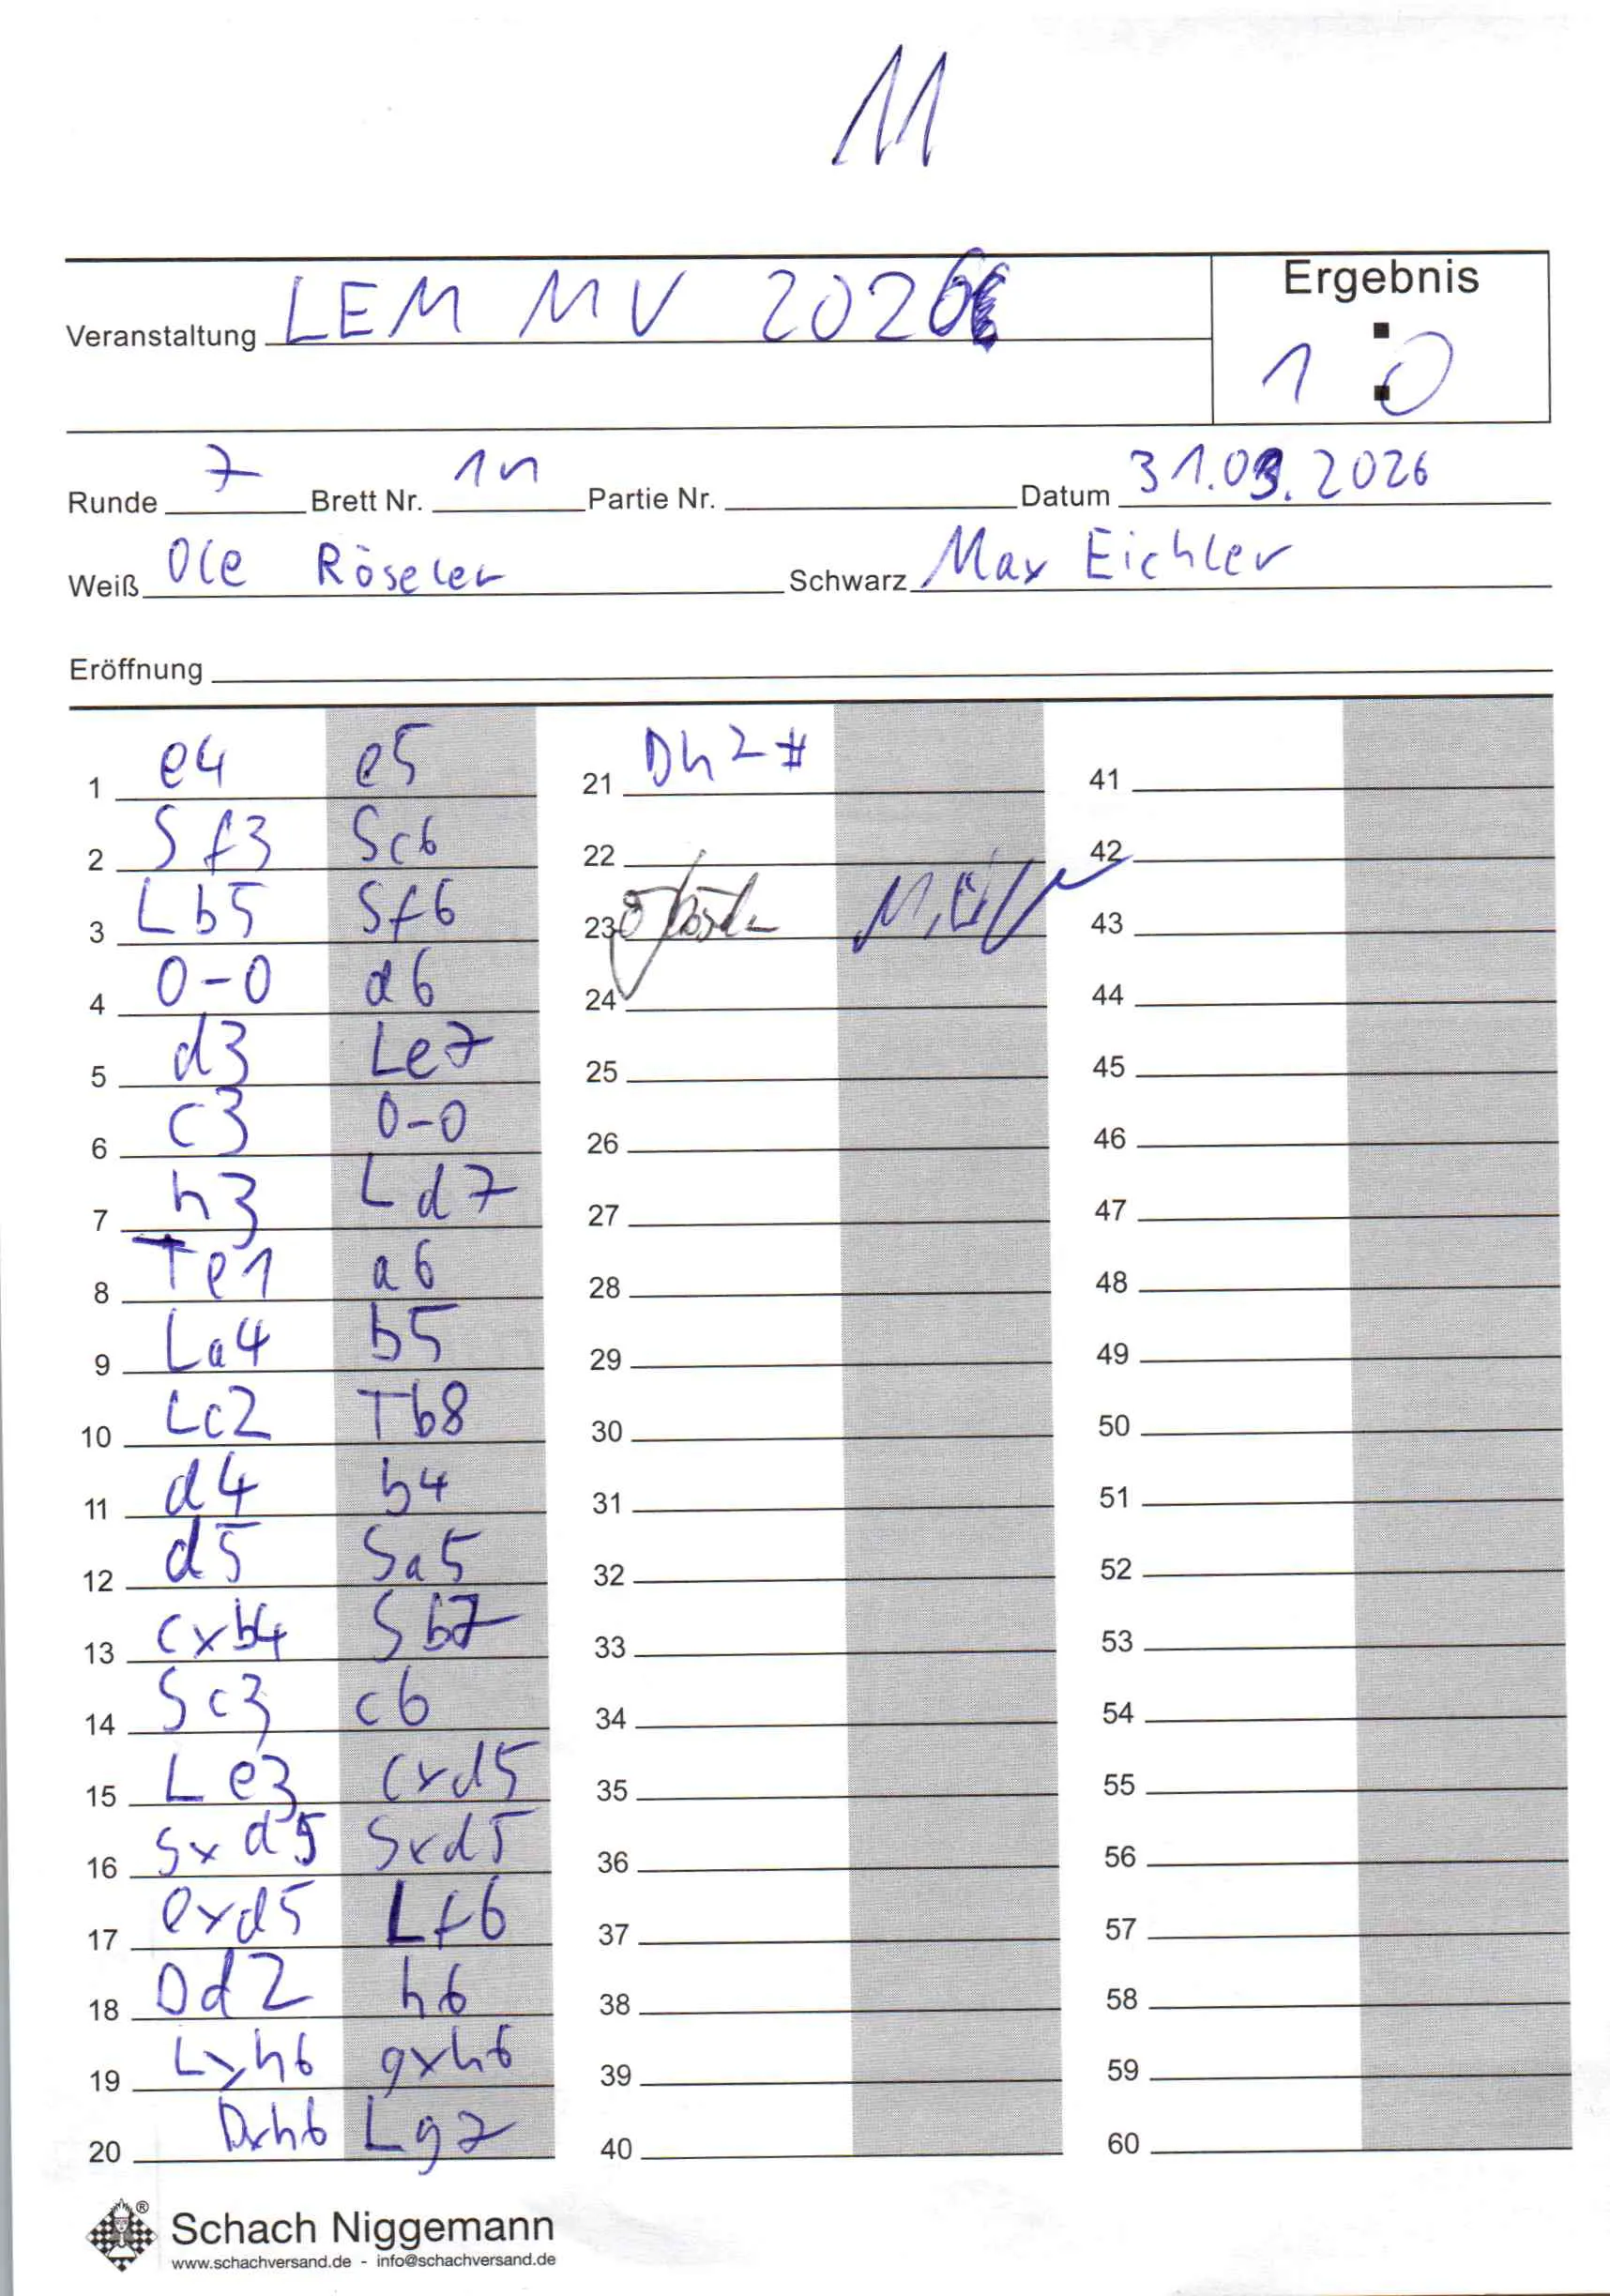 11
Veranstaltung LEM MV 2026
Ergebnis
1 : 0
Runde 7 Brett Nr. 11 Partie Nr. Datum 31.03.2026
Weiß Ole Röseler Schwarz Max Eichler
Eröffnung
1 e4 e5
2 Sf3 Sc6
3 Lb5 Sf6
4 0-0 d6
5 d3 Le7
6 c3 0-0
7 h3 Ld7
8 Te1 a6
9 La4 b5
10 Lc2 Tb8
11 d4 b4
12 d5 Sa5
13 cxb4 Sb7
14 Sc3 c6
15 Le3 cxd5
16 Sxd5 Sxd5
17 exd5 Lf6
18 Dd2 h6
19 Lxh6 gxh6
20 Dxh6 Lg7
21 Dh2#
22
23
24
25
26
27
28
29
30
31
32
33
34
35
36
37
38
39
40
41
42
43
44
45
46
47
48
49
50
51
52
53
54
55
56
57
58
59
60
® Schach Niggemann
www.schachversand.de - info@schachversand.de